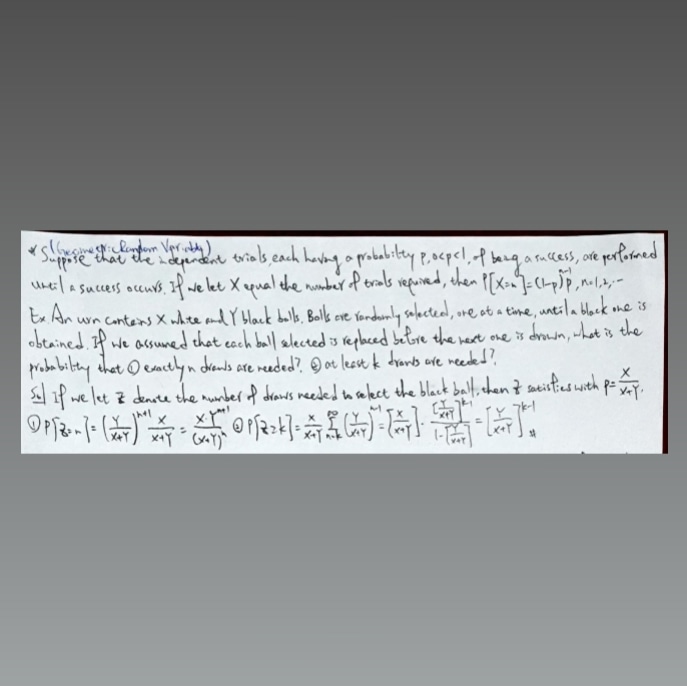 (Geometric Random Variable)
* Suppose that the independent trials, each having a probability p, 0<p<1, of being a success, are performed
until a success occurs. If we let X equal the number of trials required, then P[X=n]=(1-p)^{n-1}p, n=1,2,...
Ex. An urn contains X white and Y black balls. Balls are randomly selected, one at a time, until a black one is
obtained. If we assumed that each ball selected is replaced before the next one is drawn, what is the
probability that ① exactly n draws are needed? ② at least k draws are needed?
Sol If we let Z denote the number of draws needed to select the black ball, then Z satisfies with p= X/(X+Y).
① P[Z=n]= (Y/(X+Y))^{n-1} X/(X+Y) = X·Y^{n-1}/(X+Y)^n ② P[Z≥k]= X/(X+Y) Σ_{n=k}^{∞} (Y/(X+Y))^{n-1} = [X/(X+Y)]·[Y/(X+Y)]^{k-1}/(1-[Y/(X+Y)]) = [Y/(X+Y)]^{k-1} #